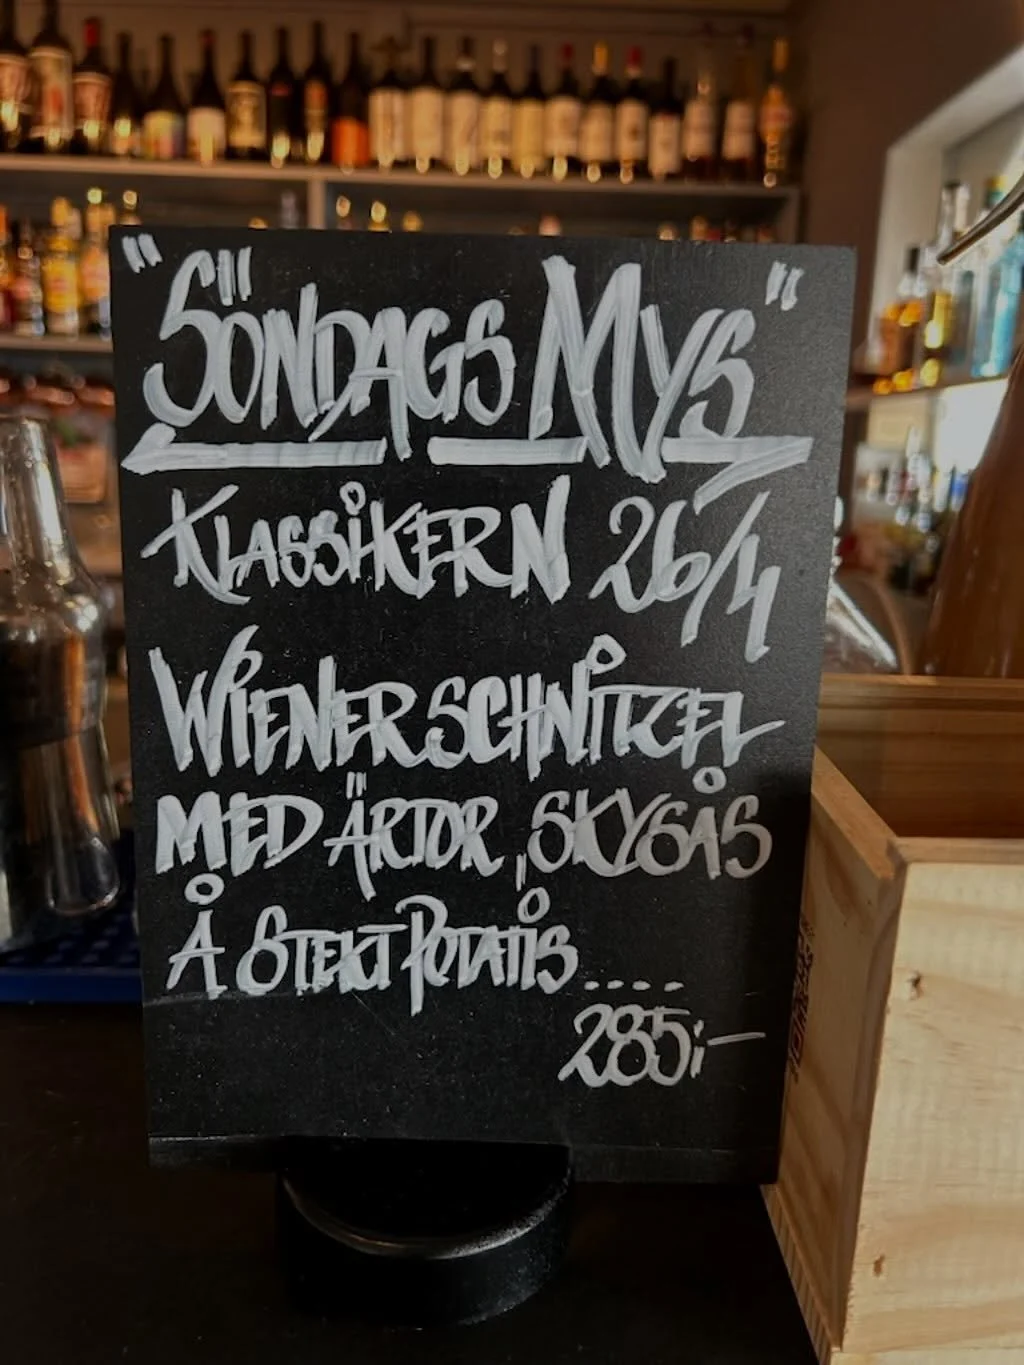 "SÖNDAGS MYS"
KLASSIKERN 26/4
WIENERSCHNITZEL
MED ÄRTOR, SKYSÅS
Å STEKT POTATIS....
285:-